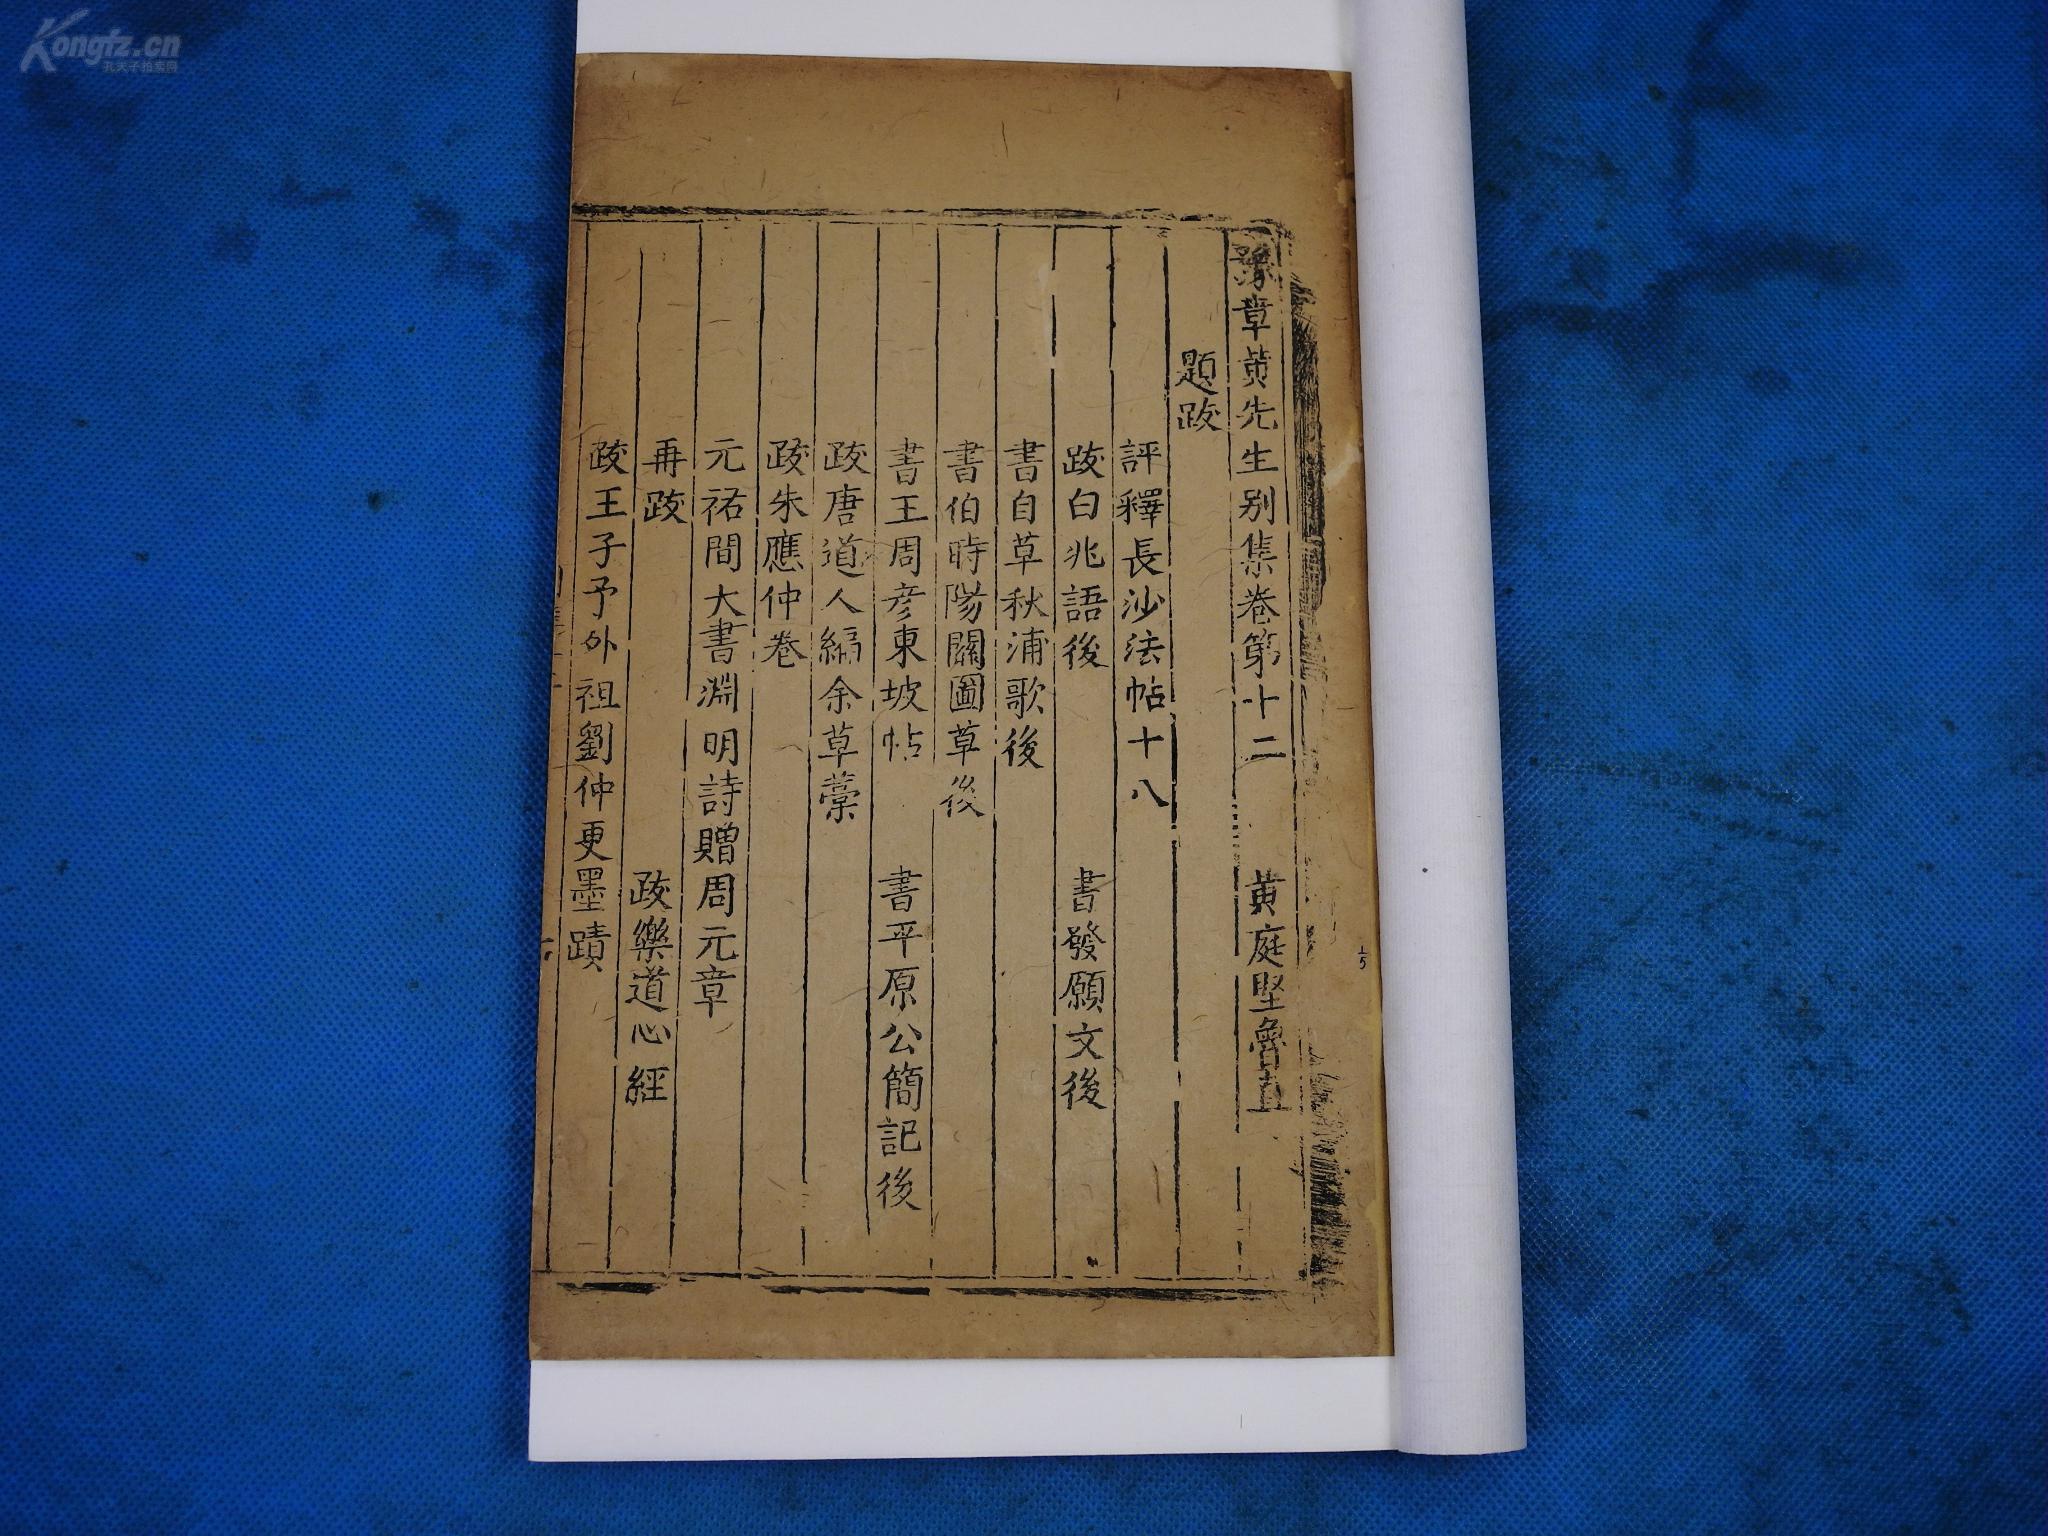 豫章黃先生别集卷第十二 黃庭堅魯直
題跋
評釋長沙法帖十八
跋白兆語後 書發願文後
書自草秋浦歌後
書伯時陽關圖草後
書王周彦東坡帖 書平原公簡記後
跋唐道人編余草藁
跋朱應仲卷
元祐間大書淵明詩贈周元章
再跋 跋樂道心經
跋王子予外祖劉仲更墨蹟
Kongfz.cn
孔夫子拍卖网